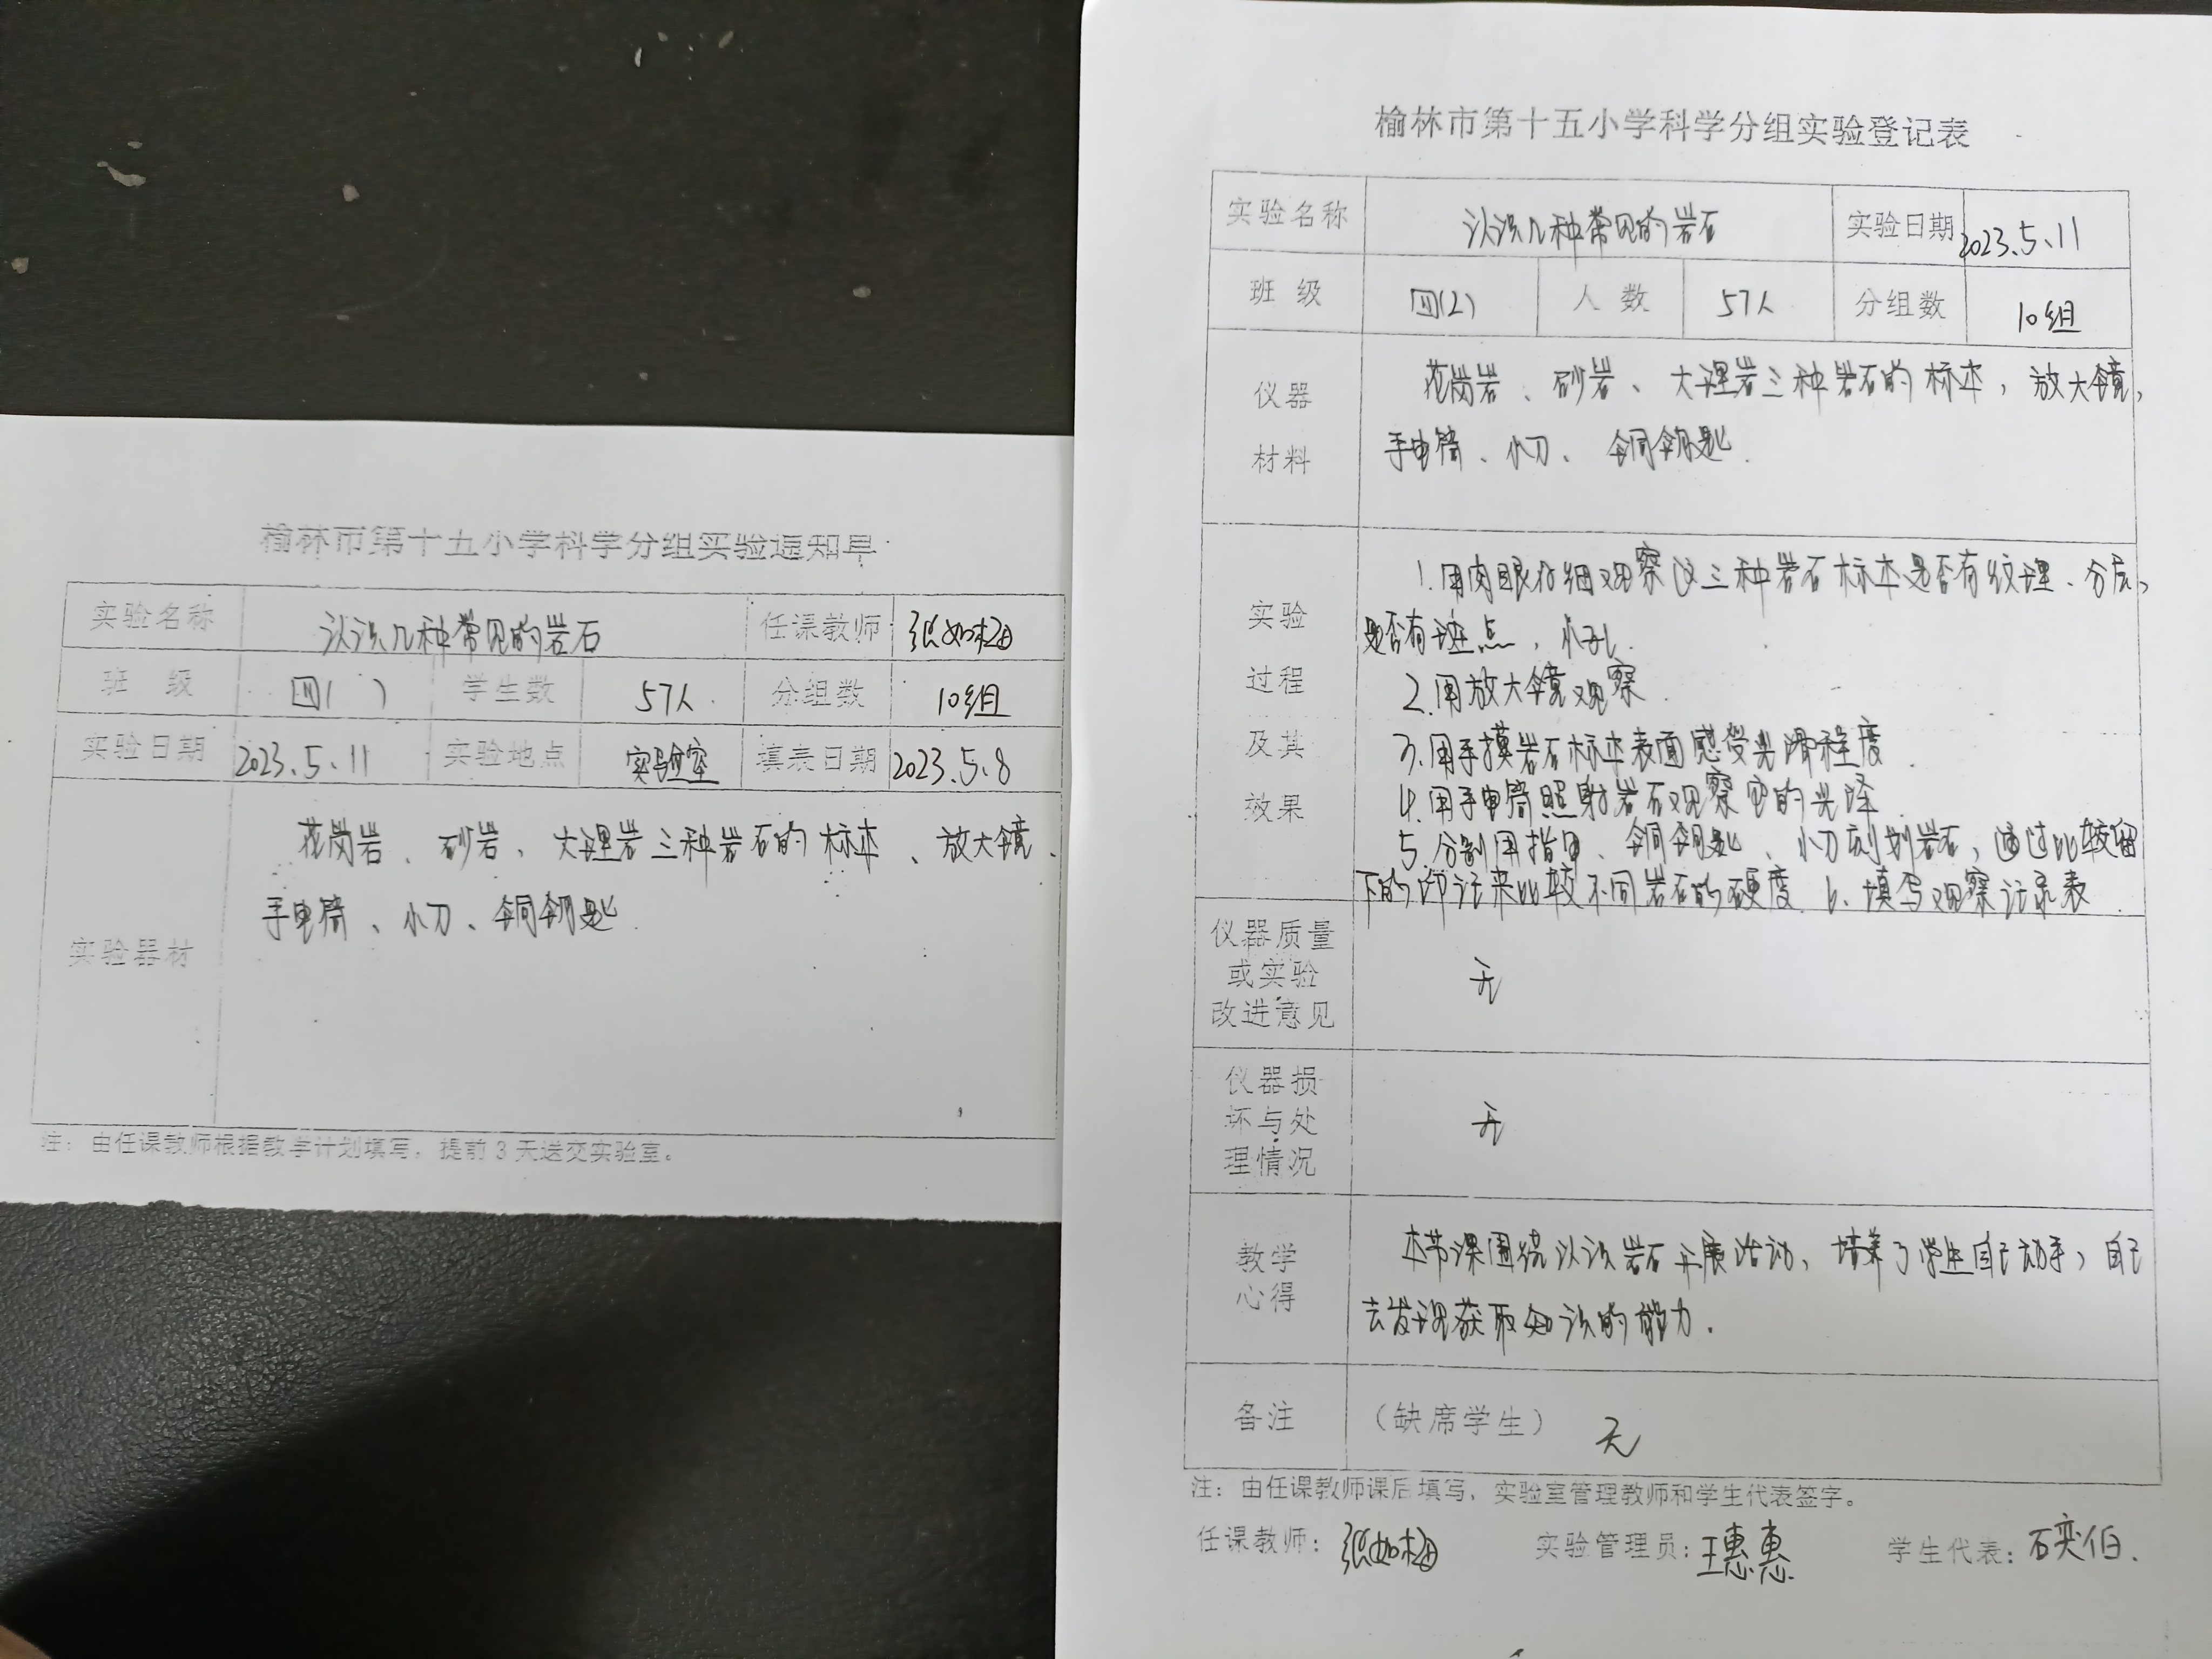 榆林市第十五小学科学分组实验通知单
实验名称 认识几种常见的岩石 任课教师 张如梅
班 级 四( ) 学生数 57人 分组数 10组
实验日期 2023.5.11 实验地点 实验室 填表日期 2023.5.8
实验器材
花岗岩、砂岩、大理岩三种岩石的标本、放大镜、
手电筒、小刀、铜钥匙.
注：由任课教师根据教学计划填写，提前3天送交实验室。
榆林市第十五小学科学分组实验登记表
实验名称 认识几种常见的岩石 实验日期 2023.5.11
班 级 四(2) 人 数 57人 分组数 10组
仪器
材料
花岗岩、砂岩、大理岩三种岩石的标本，放大镜，
手电筒、小刀、铜钥匙.
实验
过程
及其
效果
1.用肉眼仔细观察这三种岩石标本是否有纹理、分层，
是否有斑点，小孔.
2.用放大镜观察.
3.用手摸岩石标本表面感受光滑程度.
4.用手电筒照射岩石观察它的光泽
5.分别用指甲、铜钥匙、小刀刻划岩石，通过比较留
下的印记来比较不同岩石的硬度. 6、填写观察记录表.
仪器质量
或实验
改进意见
无
仪器损
坏与处
理情况
无
教学
心得
本节课围绕认识岩石开展活动，培养了学生自己动手，自己
去发现获取知识的能力.
备注 （缺席学生） 无
注：由任课教师课后填写，实验室管理教师和学生代表签字。
任课教师：张如梅 实验管理员：王惠惠 学生代表：石奕伯.